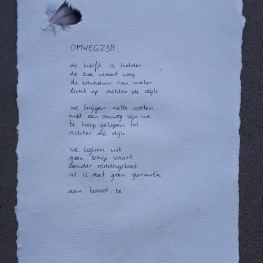 OMWEGZIJN
de herfst is helder
de zee waait weg
de schilder van water
licht op achter de dijk
we krijgen natte voeten
met een omweg zijn we
te hoop gelopen tot
achter de dijk
we lopen uit
geen schip vaart
zonder reddingsboot
al is dat geen garantie
aan boord te